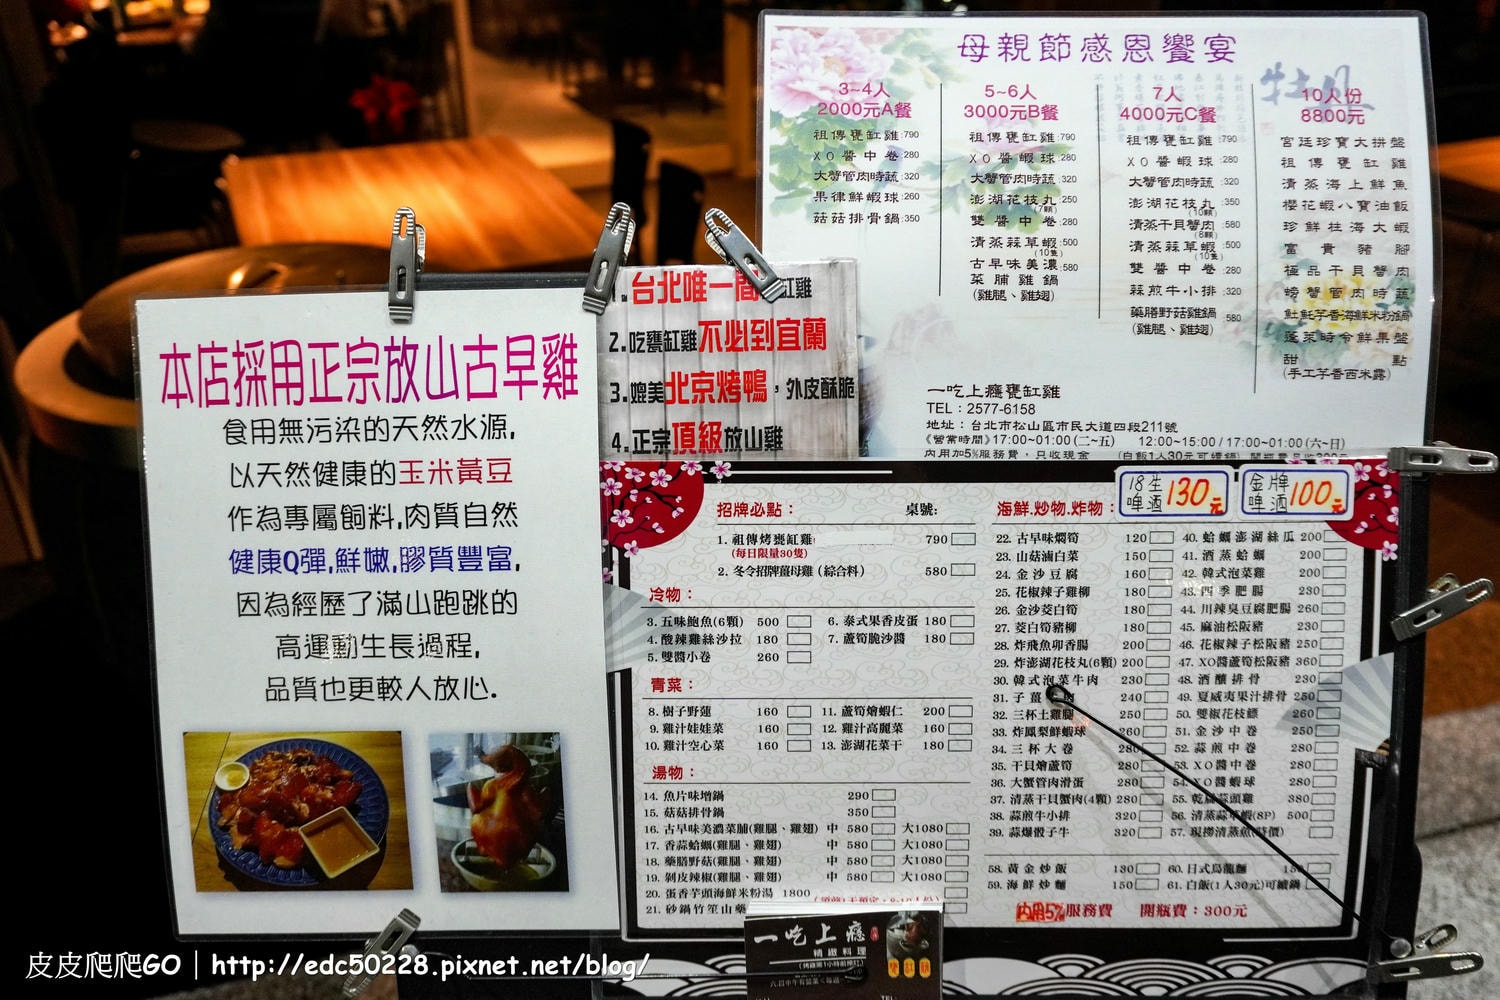 母親節感恩饗宴
3~4人
2000元A餐
祖傳甕缸雞:790
XO醬中卷:280
大蟹管肉時蔬:320
果律鮮蝦球:260
菇菇排骨鍋:350
5~6人
3000元B餐
祖傳甕缸雞:790
XO醬蝦球:280
大蟹管肉時蔬:320
澎湖花枝丸:250
(7顆)
雙醬中卷:280
清蒸蒜草蝦:500
(10隻)
古早味美濃:580
菜脯雞鍋
(雞腿、雞翅)
7人
4000元C餐
祖傳甕缸雞:790
XO醬蝦球:280
大蟹管肉時蔬:320
澎湖花枝丸:350
(10顆)
清蒸干貝蟹肉:580
(8顆)
清蒸蒜草蝦:500
(10隻)
雙醬中卷:280
蒜煎牛小排:320
藥膳野菇雞鍋:580
(雞腿、雞翅)
牡丹
10人份
8800元
宮廷珍寶大拼盤
祖傳甕缸雞
清蒸海上鮮魚
櫻花蝦八寶油飯
珍鮮炷海大蝦
富貴豬腳
極品干貝蟹肉
螃蟹管肉時蔬
魠魠芋香海鮮米粉鍋
蓬萊時令鮮果盤
甜點
(手工芋香西米露)
一吃上癮甕缸雞
TEL:2577-6158
地址:台北市松山區市民大道四段211號
《營業時間》17:00~01:00(二~五) 12:00~15:00/17:00~01:00(六~日)
內用加5%服務費,只收現金 (白飯1人30元可續鍋)
台北唯一間 缸雞
2.吃甕缸雞不必到宜蘭
3.媲美北京烤鴨,外皮酥脆
4.正宗頂級放山雞
本店採用正宗放山古早雞
食用無污染的天然水源,
以天然健康的玉米黃豆
作為專屬飼料,肉質自然
健康Q彈,鮮嫩,膠質豐富,
因為經歷了滿山跑跳的
高運動生長過程,
品質也更較人放心.
18生啤酒130元
金牌啤酒100元
招牌必點: 桌號:
1. 祖傳烤甕缸雞 790
(每日限量30隻)
2. 冬令招牌薑母雞(綜合料) 580
冷物:
3. 五味鮑魚(6顆) 500
4. 酸辣雞絲沙拉 180
5. 雙醬小卷 260
6. 泰式果香皮蛋 180
7. 蘆筍脆沙醬 180
青菜:
8. 樹子野蓮 160
9. 雞汁娃娃菜 160
10. 雞汁空心菜 160
11. 蘆筍燴蝦仁 200
12. 雞汁高麗菜 160
13. 澎湖花菜干 180
湯物:
14. 魚片味增鍋 290
15. 菇菇排骨鍋 350
16. 古早味美濃菜脯(雞腿、雞翅) 中 580 大1080
17. 香蒜蛤蠣(雞腿、雞翅) 中 580 大1080
18. 藥膳野菇(雞腿、雞翅) 中 580 大1080
19. 剝皮辣椒(雞腿、雞翅) 中 580 大1080
20. 蛋香芋頭海鮮米粉湯 1800
21. 砂鍋竹笙山藥
海鮮.炒物.炸物:
22. 古早味燜筍 120
23. 山菇滷白菜 150
24. 金沙豆腐 160
25. 花椒辣子雞柳 180
26. 金沙茭白筍 180
27. 茭白筍豬柳 180
28. 炸飛魚卵香腸 200
29. 炸澎湖花枝丸(6顆) 200
30. 韓式泡菜牛肉 230
31. 子薑 肉 240
32. 三杯土雞腿 250
33. 炸鳳梨鮮蝦球 260
34. 三杯大卷 280
35. 干貝燴蘆筍 280
36. 大蟹管肉滑蛋 280
37. 清蒸干貝蟹肉(4顆) 280
38. 蒜煎牛小排 320
39. 蒜爆骰子牛 320
40. 蛤蠣澎湖絲瓜 200
41. 酒蒸蛤蠣 200
42. 韓式泡菜雞 200
43. 四季肥腸 230
44. 川辣臭豆腐肥腸 260
45. 麻油松阪豬 230
46. 花椒辣子松阪豬 250
47. XO醬蘆筍松阪豬 360
48. 酒釀排骨 230
49. 夏威夷果汁排骨 250
50. 雙椒花枝鰾 260
51. 金沙中卷 280
52. 蒜煎中卷 280
53. XO醬中卷 280
54. XO醬蝦球 280
55. 乾扁蒜頭雞 380
56. 清蒸蒜草蝦(8P) 500
57. 現撈清蒸魚(時價)
58. 黃金炒飯 130
59. 海鮮炒麵 150
60. 日式烏龍麵 150
61. 白飯(1人30元)可續鍋
內用5%服務費 開瓶費:300元
一吃上癮
精緻料理
皮皮爬爬GO|http://edc50228.pixnet.net/blog/